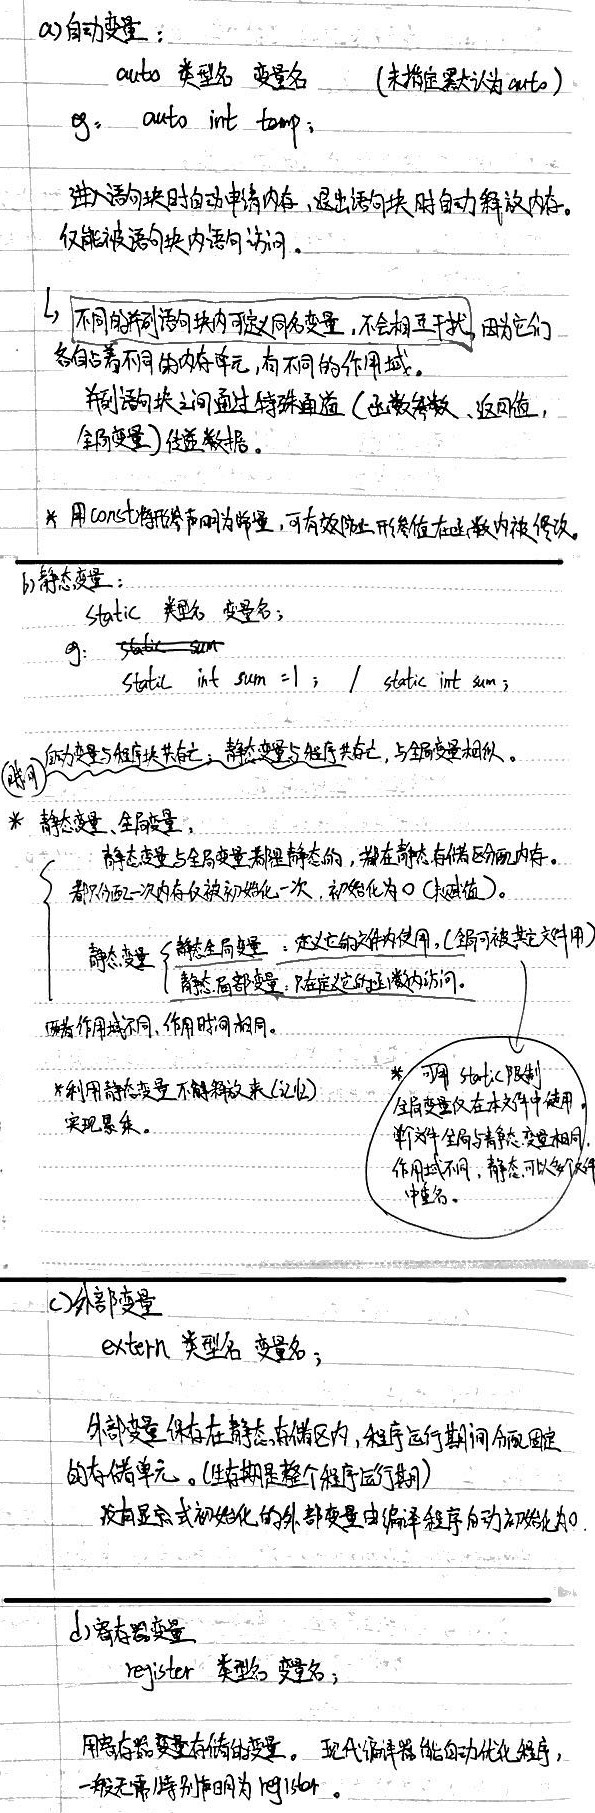 a)自动变量：
auto 类型名 变量名 (未指定默认为auto)
eg: auto int temp;
进入语句块时自动申请内存，退出语句块时自动释放内存。
仅能被语句块内语句访问。
不同的并列语句块内可定义同名变量，不会相互干扰，因为它们
各自占着不同的内存单元，有不同的作用域。
并列语句块之间通过特殊通道(函数参数、返回值，
全局变量)传递数据。
* 用const将形参声明为常量，可有效防止形参值在函数内被修改。
b)静态变量：
static 类型名 变量名；
eg: static sum
static int sum =1; / static int sum;
(时间) 自动变量与程序块共存亡；静态变量与程序共存亡，与全局变量相似。
* 静态变量、全局变量，
静态变量与全局变量都是静态的，都在静态存储区分配内存。
都只分配一次内存仅被初始化一次，初始化为0(未赋值)。
静态变量 静态全局变量：定义它的文件内使用，(全局可被其它文件用)
静态局部变量：只在定义它的函数内访问。
两者作用域不同，作用时间相同。
*利用静态变量不解释放来(记忆)
实现累乘。
* 可用 static限制
全局变量仅在本文件中使用。
单文件全局与静态变量相同，
作用域不同，静态可以多个文件
中重名。
c)外部变量
extern 类型名 变量名；
外部变量保存在静态存储区内，程序运行期间分配固定
的存储单元。(生存期是整个程序运行期)
没有显式初始化的外部变量由编译程序自动初始化为0.
d)寄存器变量
register 类型名 变量名；
用寄存器变量存储的变量。现代编译器能自动优化程序，
一般无需特别声明为register。